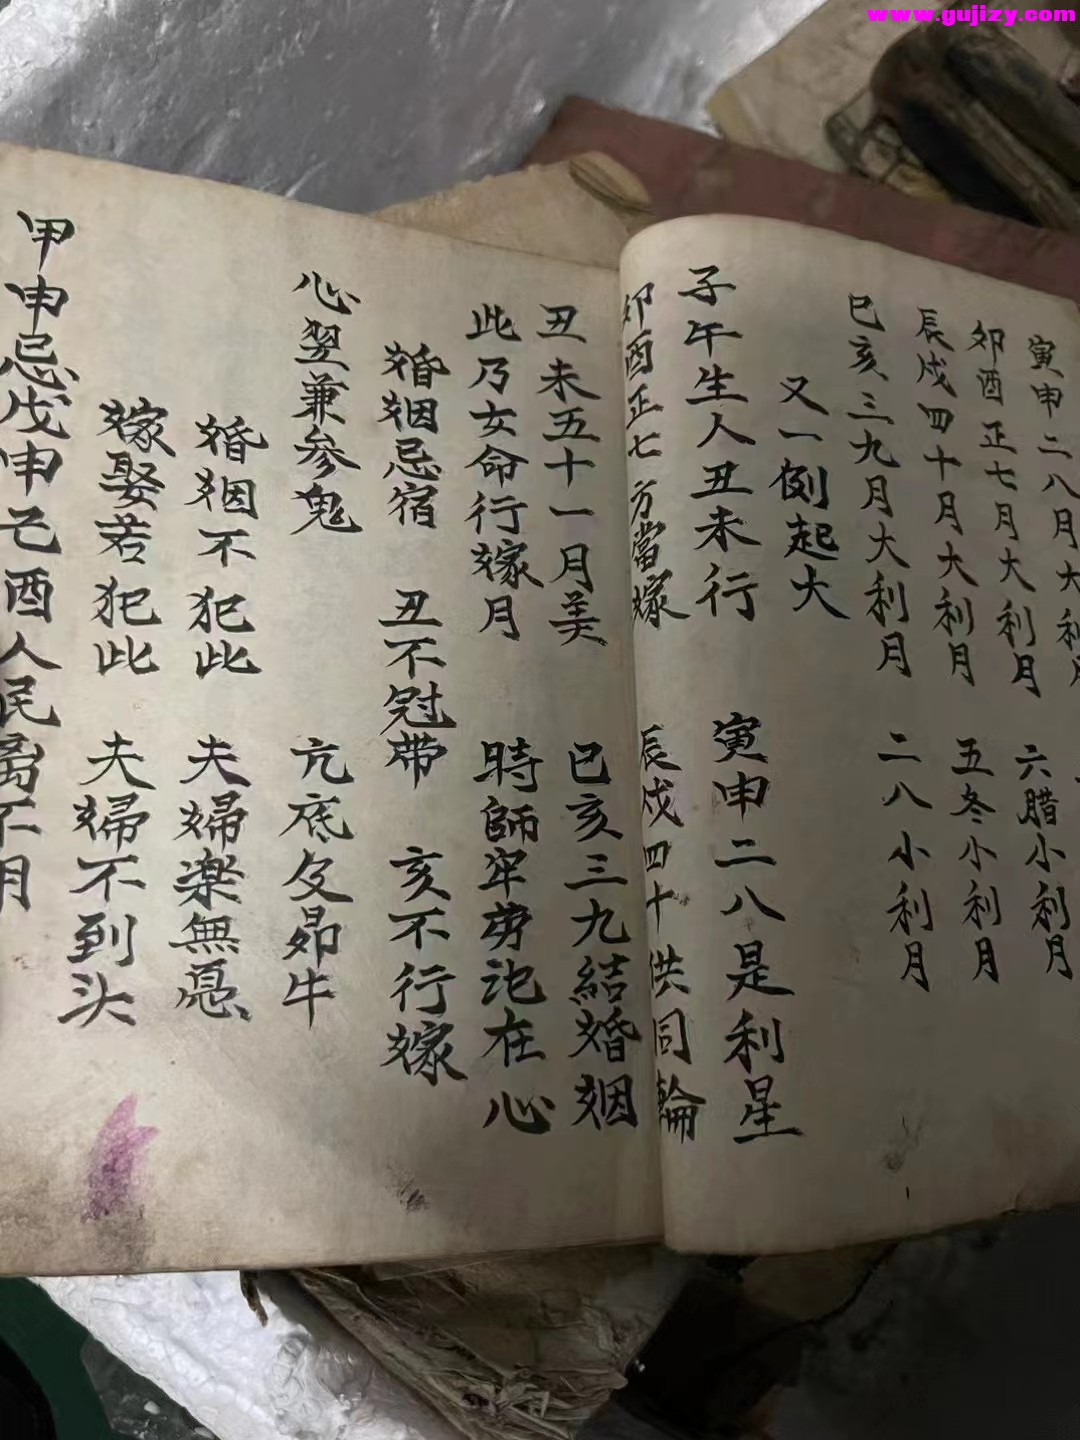 www.gujizy.com
寅申二八月大利月
卯酉正七月大利月 六腊小利月
辰戌四十月大利月 五冬小利月
巳亥三九月大利月 二八小利月
又一例起大
子午生人丑未行 寅申二八是利星
卯酉正七方當嫁 辰戌四十供同輪
丑未五十一月美 巳亥三九結婚姻
此乃女命行嫁月 時師牢 在心
婚姻忌宿 丑不冠带 亥不行嫁
心翌兼參鬼 亢底女昴牛
婚姻不犯此 夫婦楽無
嫁娶若犯此 夫婦不到头
甲申忌戊申己酉人民離不月